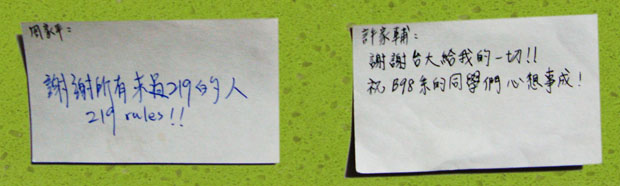 周家平：
謝謝所有來過219的人
219 rules!!
許家輔：
謝謝台大給我的一切!!
祝B98系的同學們心想事成!